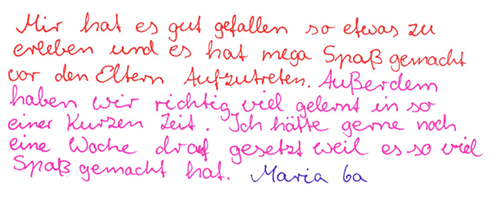 Mir hat es gut gefallen so etwas zu
erleben und es hat mega Spaß gemacht
vor den Eltern Aufzutreten. Außerdem
haben wir richtig viel gelernt in so
einer Kurzen Zeit. Ich hätte gerne noch
eine Woche draf gesetzt weil es so viel
Spaß gemacht hat. Maria 6a